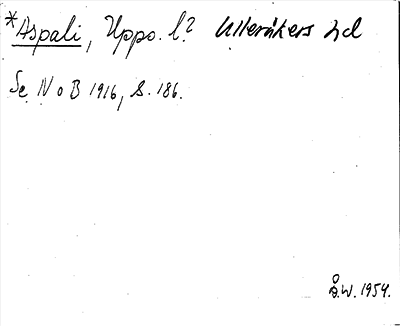 *Aspali, Upps. l.? Ulleråkers hd
Se N o B 1916, S. 186.
Å.W. 1954.